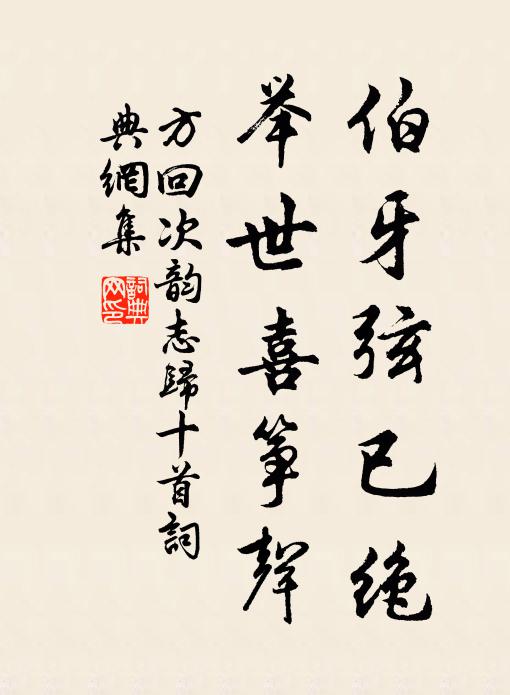 伯牙弦已绝
举世喜筝聲
方回次韵志歸十首詞
典網集
詞典网印